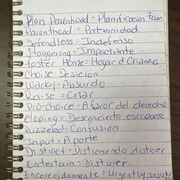 Plan Parenhood = Planificacion Fam
Parenthood = Paternidad
Defendless = Indefenso
Staggering = Impactante
foster Home = Hogar d Crianza
Choise = Desicion
Wacky = Absurdo
Raise = Criar
Pro-choice = A favor del derecho
Eloping = Desconcierto escaparse
Puzzeled = Confusion
Input = Aporte
Distract = Distrayendo, distraer
Entertain = Distraer
Urgently